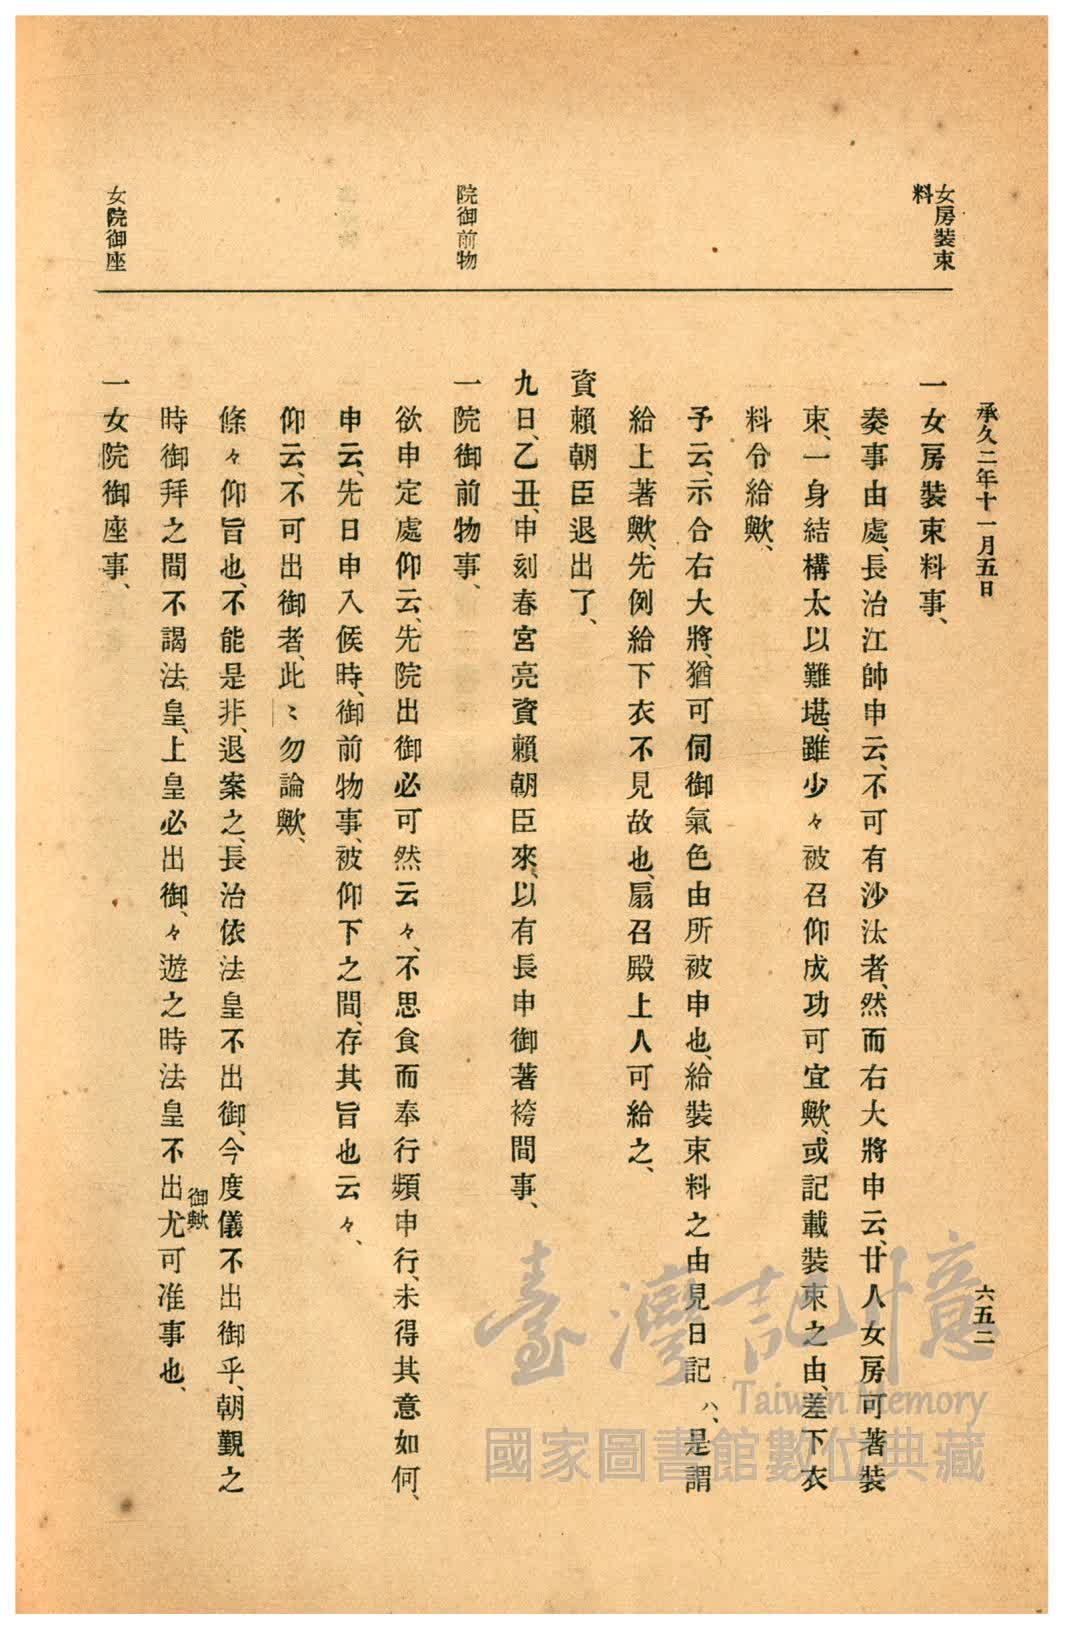 承久二年十一月五日
六五二
女房装束
料
院御前物
女院御座
一女房装束料事、
奏事由處、長治江帥申云、不可有沙汰者、然而右大將申云、廿人女房可著装
束、一身結構太以難堪、雖少々被召仰成功可宜歟、或記載装束之由、差下衣
料令給歟、
予云、示合右大將、猶可伺御氣色由所被申也、給装束料之由見日記ハ、是謂
給上著歟、先例給下衣不見故也、扇召殿上人可給之、
資賴朝臣退出了、
九日、乙丑、申刻春宮亮資賴朝臣來、以有長申御著袴間事、
一院御前物事、
欲申定處仰云、先院出御必可然云々、不思食而奉行頻申行、未得其意如何、
申云、先日申入候時、御前物事、被仰下之間、存其旨也云々、
仰云、不可出御者、此〻勿論歟、
條々仰旨也、不能是非、退案之、長治依法皇不出御、今度儀不出御乎、朝覲之
時御拜之間、不謁法皇、上皇必出御、々遊之時法皇不出尤可准事也、
御歟
一女院御座事、
臺灣記憶
Taiwan Memory
國家圖書館數位典藏